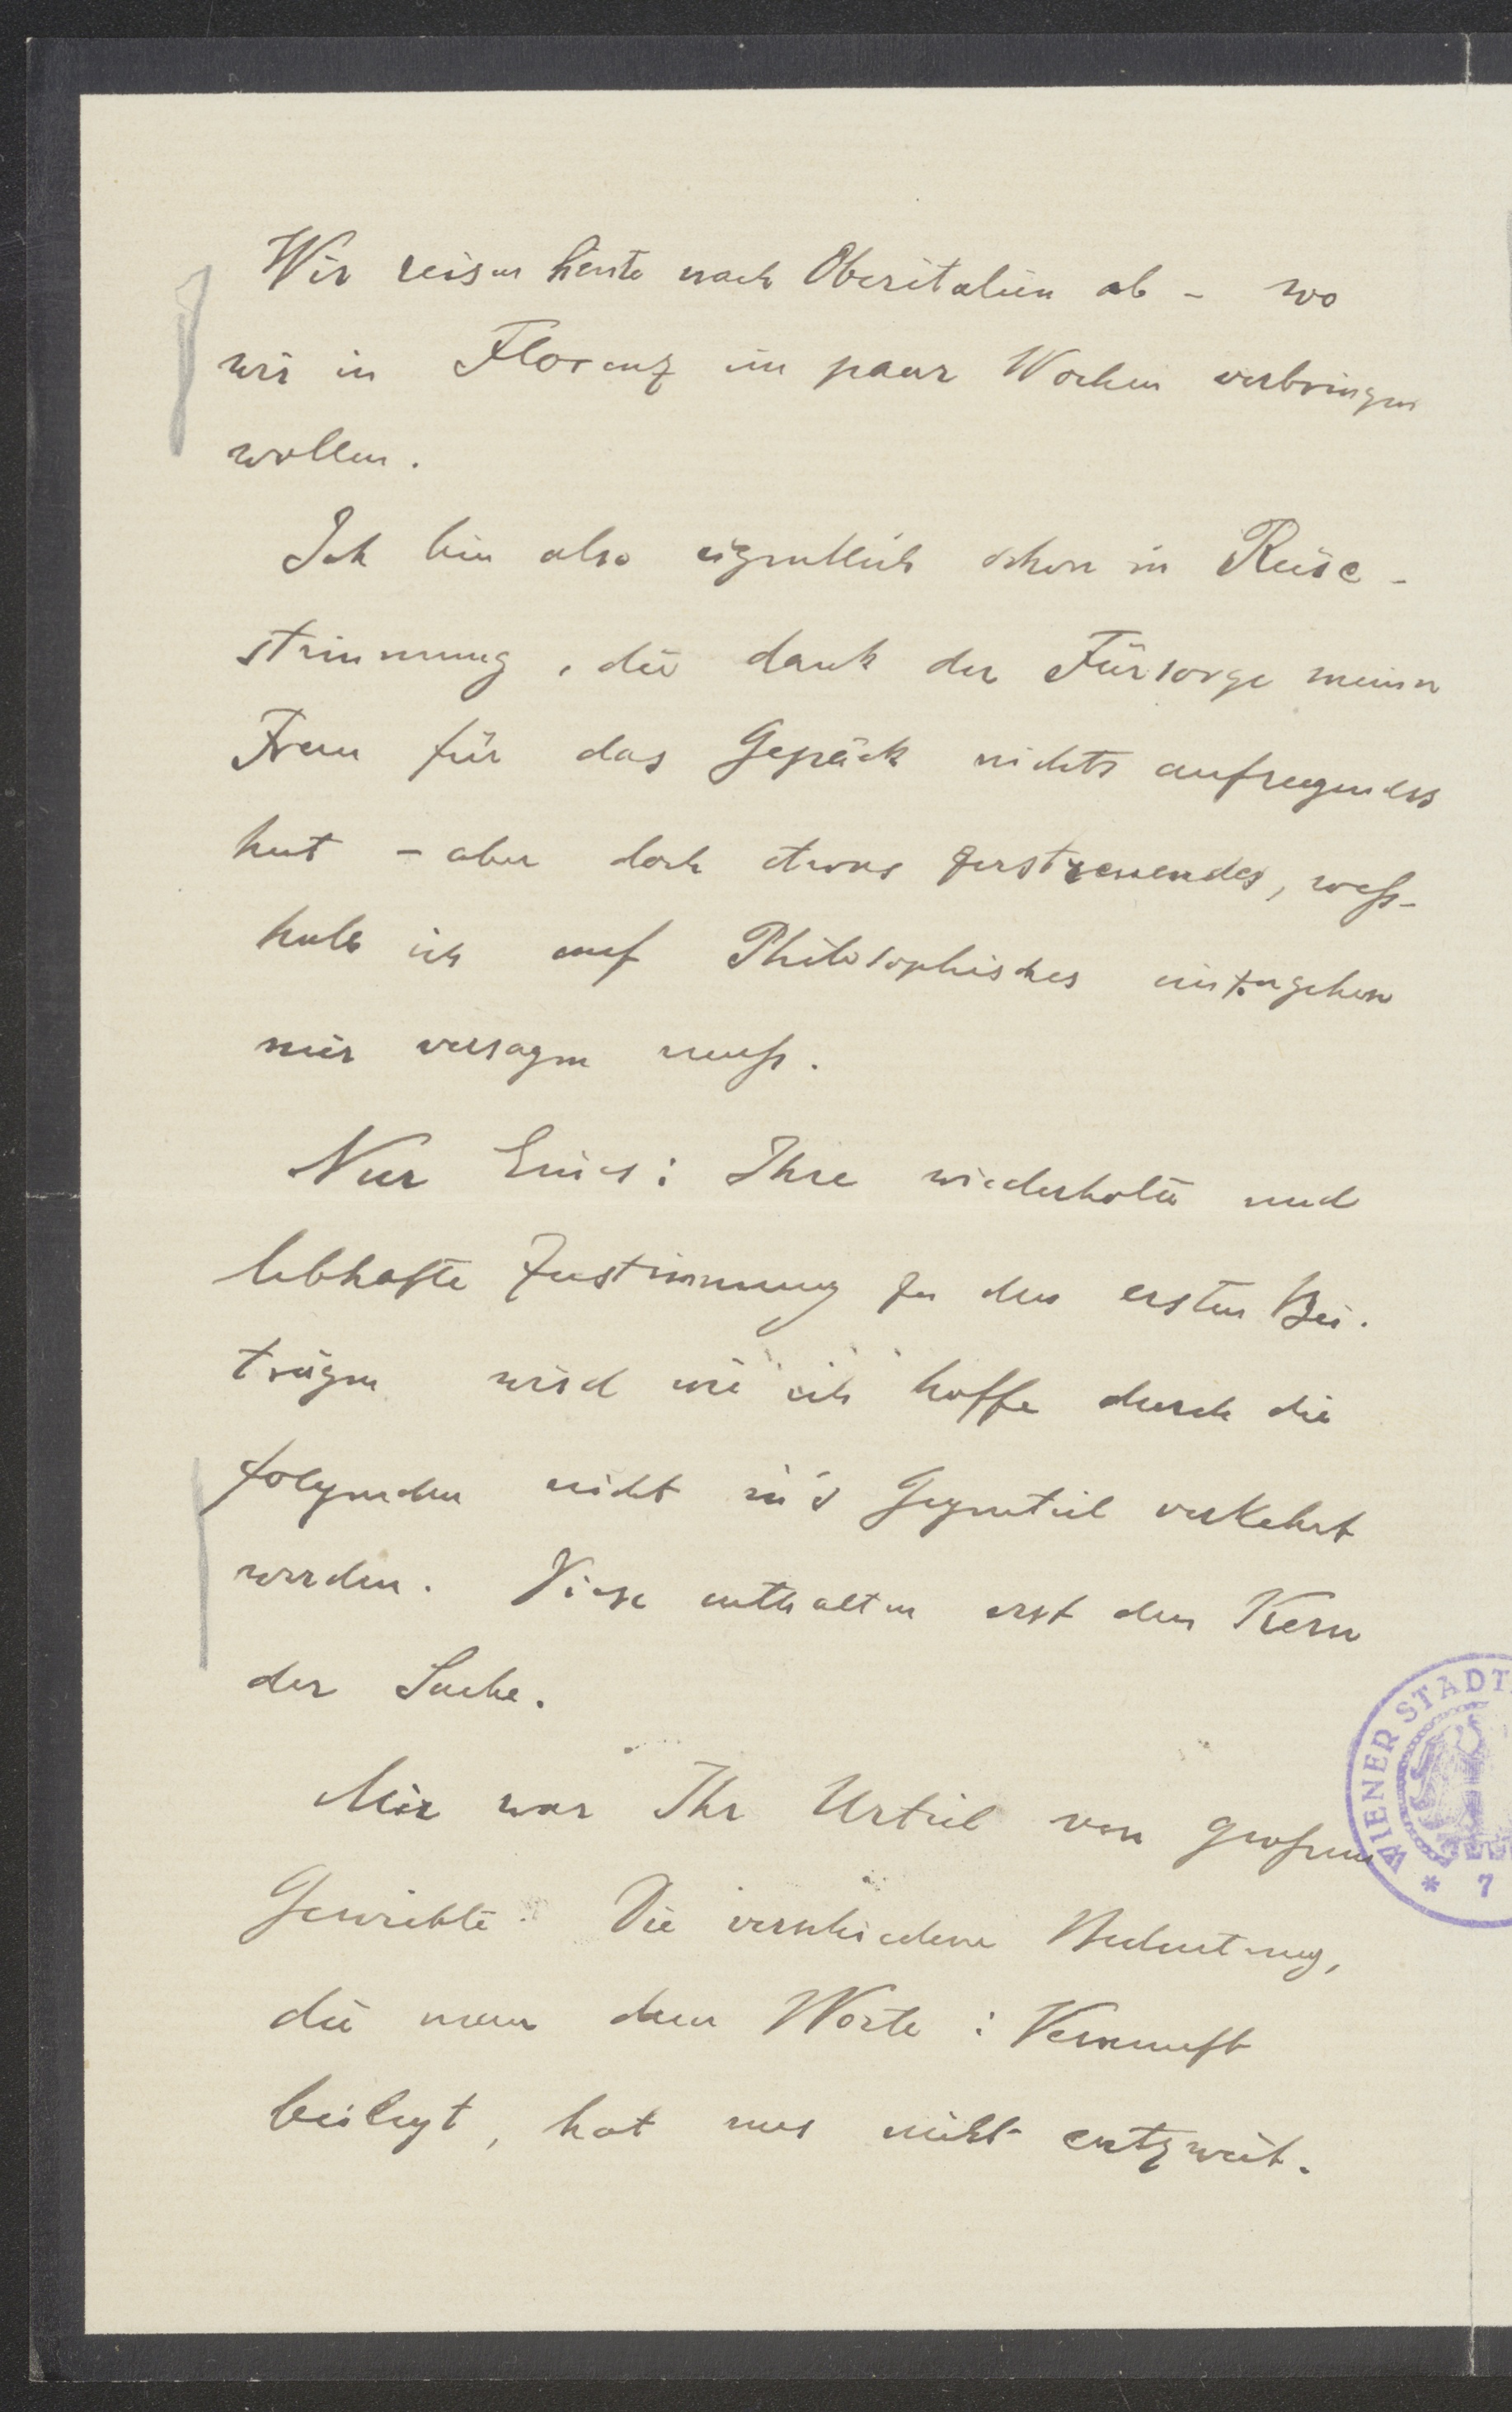 Wir reisen heute nach Oberitalien ab – wo
wir in Florenz ein paar Wochen verbringen
wollen.
Ich bin also eigentlich schon in Reise-
stimmung, die dank der Fürsorge meiner
Frau für das Gepäck nichts aufregendes
hat – aber doch etwas zerstreuendes, weß-
halb ich auf Philosophisches einzugehen
mir versagen muß.
Nur Eines: Ihre wiederholte und
lebhafte Zustimmung zu den ersten Bei-
trägen wird wie ich hoffe durch die
folgenden nicht in's Gegenteil verkehrt
werden. Diese enthalten erst den Kern
der Sache.
Mir war Ihr Urteil von großem
Gewichte. Die verschiedene Bedeutung,
die man dem Worte: Vernunft
beilegt, hat uns nicht entzweit.
WIENER STADT
* 7